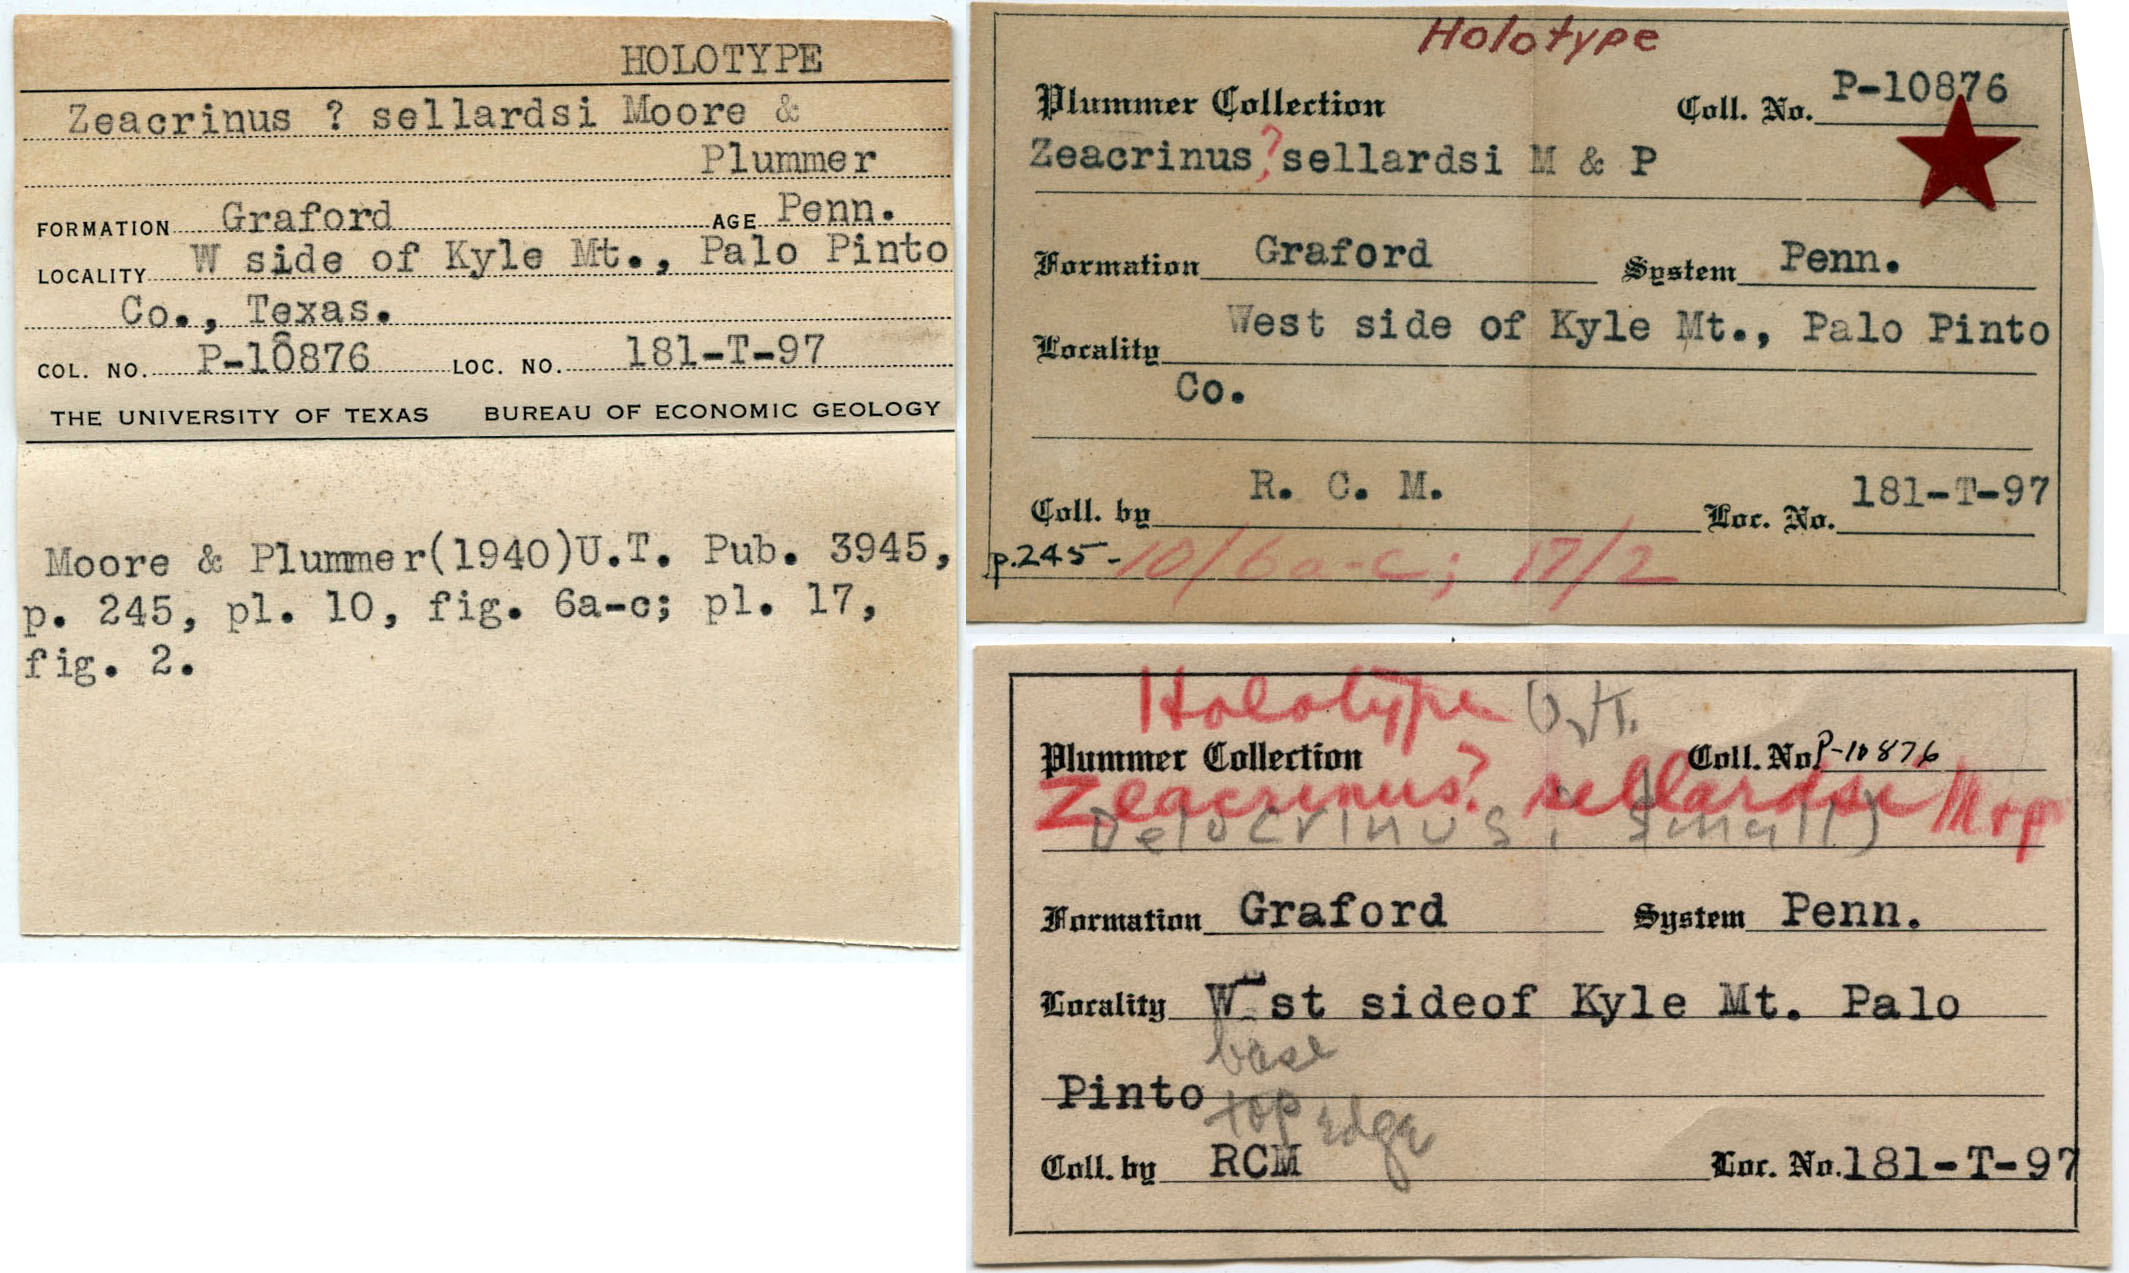 HOLOTYPE
Zeacrinus ? sellardsi Moore &
Plummer
FORMATION Graford AGE Penn.
LOCALITY W side of Kyle Mt., Palo Pinto
Co., Texas.
COL. NO. P-10876 LOC. NO. 181-T-97
THE UNIVERSITY OF TEXAS BUREAU OF ECONOMIC GEOLOGY
Moore & Plummer(1940)U.T. Pub. 3945,
p. 245, pl. 10, fig. 6a-c; pl. 17,
fig. 2.
Holotype
Plummer Collection Coll. No. P-10876
Zeacrinus ? sellardsi M & P
Formation Graford System Penn.
Locality West side of Kyle Mt., Palo Pinto
Co.
Coll. by R. C. M. Loc. No. 181-T-97
p.245- 10/6a-c; 17/2
Holotype O.K.
Plummer Collection Coll. No. P-10876
Zeacrinus? sellardsi M+P
Delocrinus, small)
Formation Graford System Penn.
Locality West sideof Kyle Mt. Palo
base
Pinto
top edge
Coll. by RCM Loc. No. 181-T-97